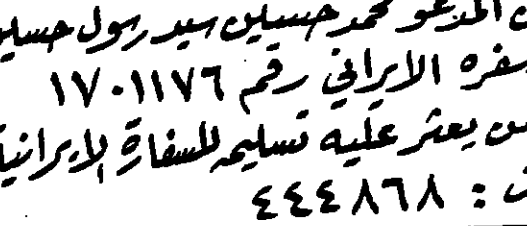 المدعو محمد حسين سيد رسول حسين
سفره الايراني رقم ١٧٠١١٧٦
يعثر عليه تسليمه للسفارة الايرانية
ت : ٤٤٤٨٦٨